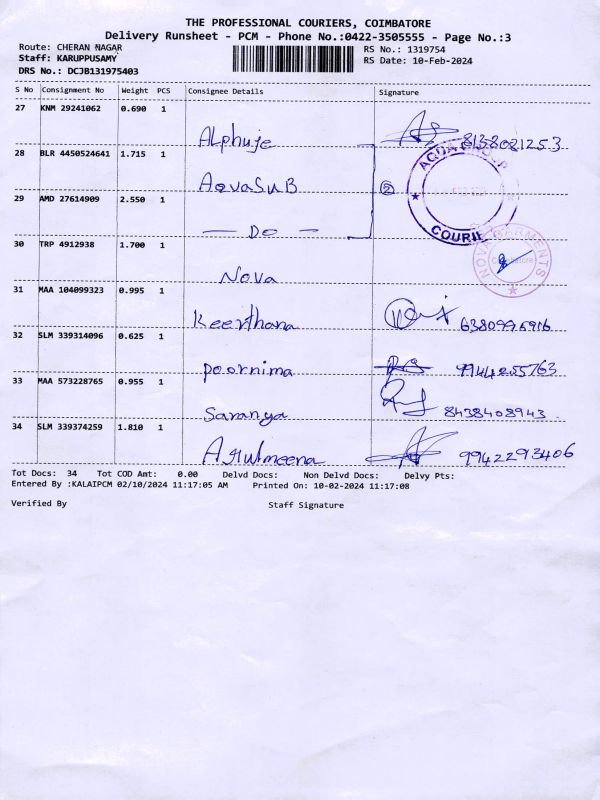 THE PROFESSIONAL COURIERS, COIMBATORE
Delivery Runsheet - PCM - Phone No.:0422-3505555 - Page No.:3
Route: CHERAN NAGAR
RS No.: 1319754
Staff: KARUPPUSAMY
RS Date: 10-Feb-2024
DRS No.: DCJB131975403
S No Consignment No Weight PCS Consignee Details Signature
27 KNM 29241062 0.690 1
Alphuje 8138021253
28 BLR 4450524641 1.715 1
AqvaSuB 2
AQUA GROUP
COURIER
29 AMD 27614909 2.550 1
— Do —
30 TRP 4912938 1.700 1
Nova
NOVA GARMENTS
31 MAA 104099323 0.995 1
Keerthana 6380995916
32 SLM 339314096 0.625 1
Poornima 9944255763
33 MAA 573228765 0.955 1
Saranya 8438408943
34 SLM 339374259 1.810 1
9942293406
Tot Docs: 34 Tot COD Amt: 0.00 Delvd Docs: Non Delvd Docs: Delvy Pts:
Entered By :KALAIPCM 02/10/2024 11:17:05 AM Printed On: 10-02-2024 11:17:08
Verified By Staff Signature